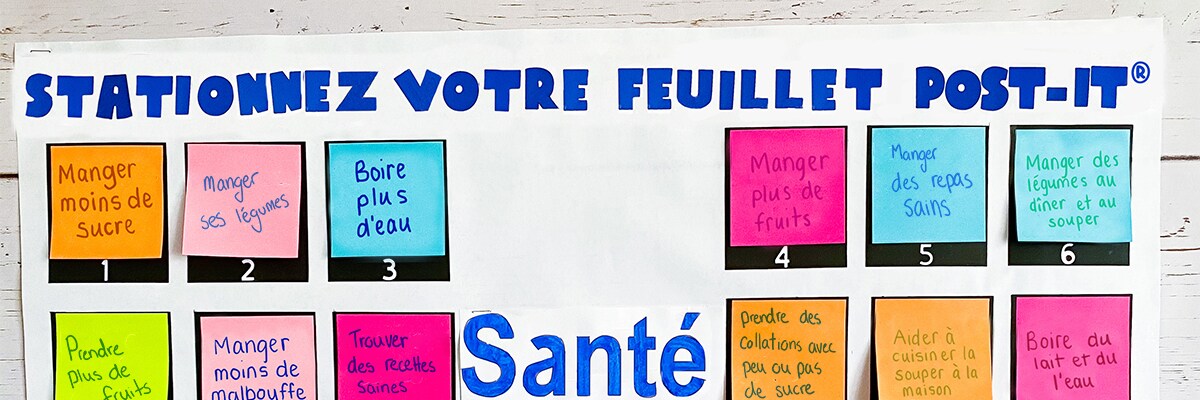 STATIONNEZ VOTRE FEUILLET POST-IT®
Manger
moins de
sucre
1
Manger
ses légumes
2
Boire
plus
d'eau
3
Manger
plus de
fruits
4
Manger
des repas
sains
5
Manger des
légumes au
dîner et au
souper
6
Prendre
plus de
fruits
Manger
moins de
malbouffe
Trouver
des recettes
saines
Santé
Prendre des
collations avec
peu ou pas
de sucre
Aider à
cuisiner la
souper à la
maison
Boire du
lait et du
l'eau